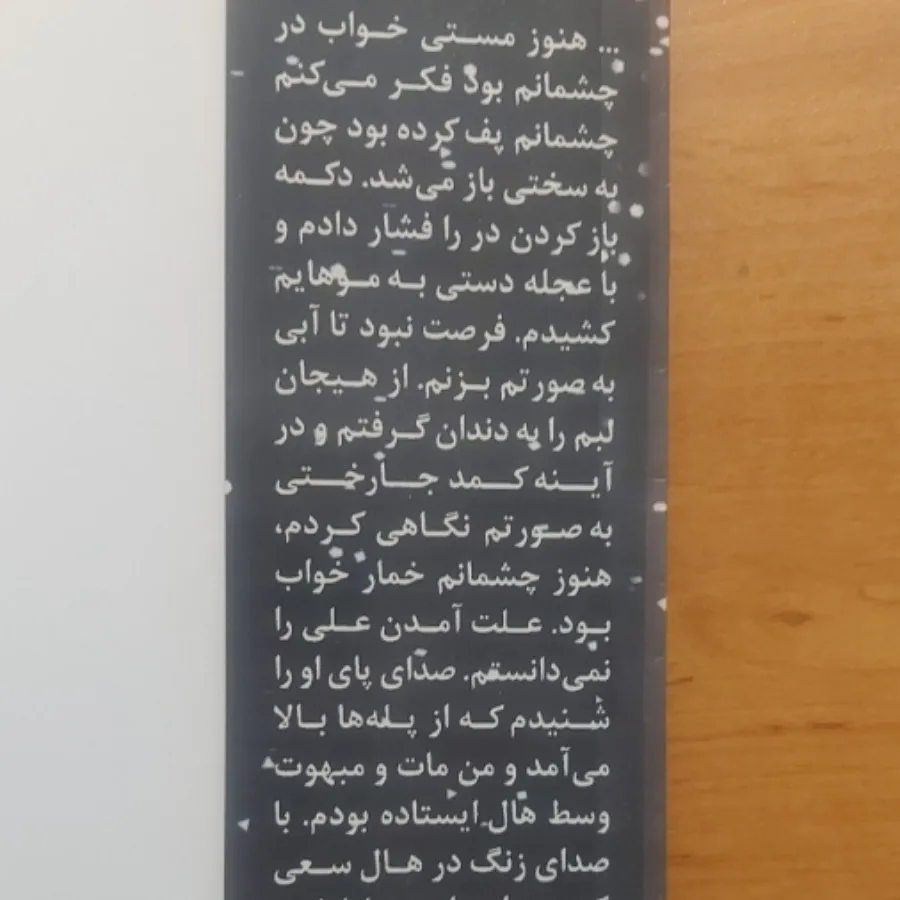 ... هنوز مستی خواب در
چشمانم بود فکر می‌کنم
چشمانم پف کرده بود چون
به سختی باز می‌شد. دکمه
باز کردن در را فشار دادم و
با عجله دستی به موهایم
کشیدم. فرصت نبود تا آبی
به صورتم بزنم. از هیجان
لبم را به دندان گرفتم و در
آینه کمد جارختی
به صورتم نگاهی کردم،
هنوز چشمانم خمار خواب
بود. علت آمدن علی را
نمی‌دانستم. صدای پای او را
شنیدم که از پله‌ها بالا
می‌آمد و من مات و مبهوت
وسط هال ایستاده بودم. با
صدای زنگ در هال سعی